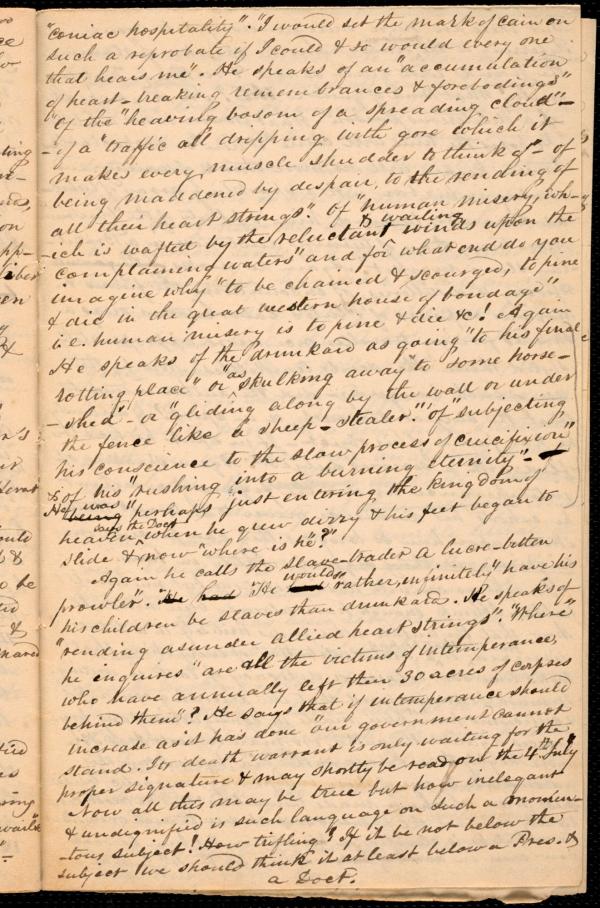 "coniac hospitality". "I would set the mark of cain on
such a reprobate if I could & so would every one
that hears me". He speaks of an "accumulation
of heart-breaking remembrances & forebodings"
"of the "heaving bosom of a spreading cloud"-
- of a "traffic all dripping with gore which it
makes every muscle shudder to think of - of
being maddened by despair, to the rending of
all their heart strings". of "human misery, wh-
& wailing
ich is wafted by the reluctant winds upon the
complaining waters" and for what end do you
imagine why "to be chained & scourged, to pine
& die in the great western house of bondage"
i.e. human misery is to pine & die &c. Again
He speaks of the drunkard as going "to his final
rotting place" or as "skulking away "to some horse-
-shed"- or "gliding along by the wall or under
the fence like a sheep-stealer." of "subjecting
his conscience to the slow process of crucifixion"
& of his "rushing into a burning eternity"-
He was "perhaps just entering the kingdom of
says the Doct
heaven, when he grew dizzy & his feet began to
slide & now "where is he?"
Again he calls the slave-trader a lucre-bitten
prowler". "He had "He would "rather, infinitely" have his
his children be slaves than drunkard. He speaks of
"rending asunder allied heart strings". "Where"
he enquires "are all the victims of intemperance,
who have annually left their 30 acres of corpses
behind them"? He says that if intemperance should
increase as it has done "our government cannot
stand. Its death warrant is only waiting for the
proper signature & may shortly be read on the 4th July
Now all this may be true but how inelegant
& undignified is such language on such a momen-
-tous subject! How trifling! If it be not below the
subject we should think it at least below a Pres. &
a Doct.